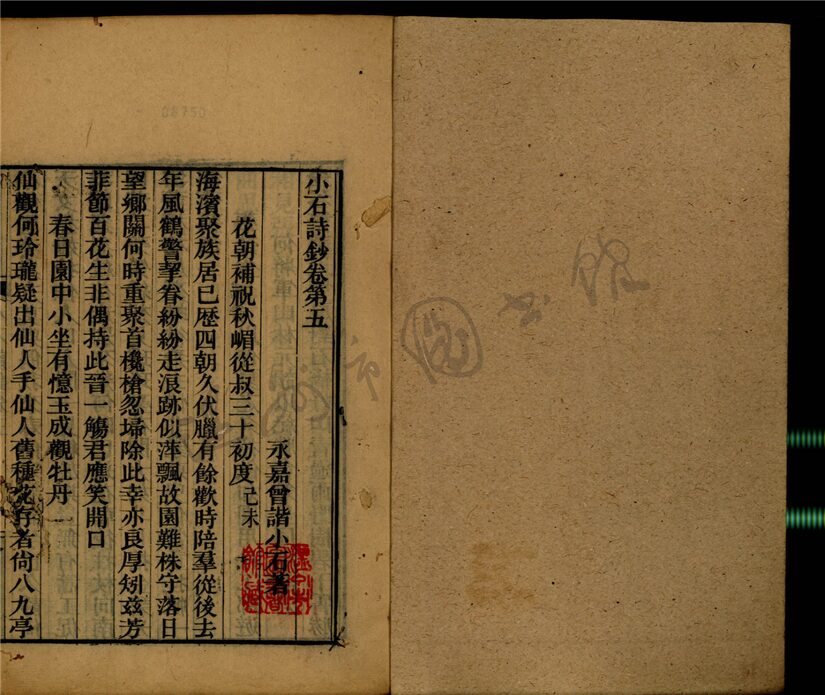 小石詩鈔卷第五
永嘉曾諧小石著
花朝補祝秋嵋從叔三十初度己未
海濱聚族居已歴四朝久伏臘有餘歡時陪羣從後去
年風鶴警挈眷紛紛走浪跡似萍飄故園難株守落日
望鄉關何時重聚首欃槍忽埽除此幸亦良厚矧兹芳
菲節百花生非偶持此晉一觴君應笑開口
春日園中小坐有憶玉成觀牡丹
仙觀何玲瓏疑出仙人手仙人舊種花存者尙八九亭
市圖书館
08750